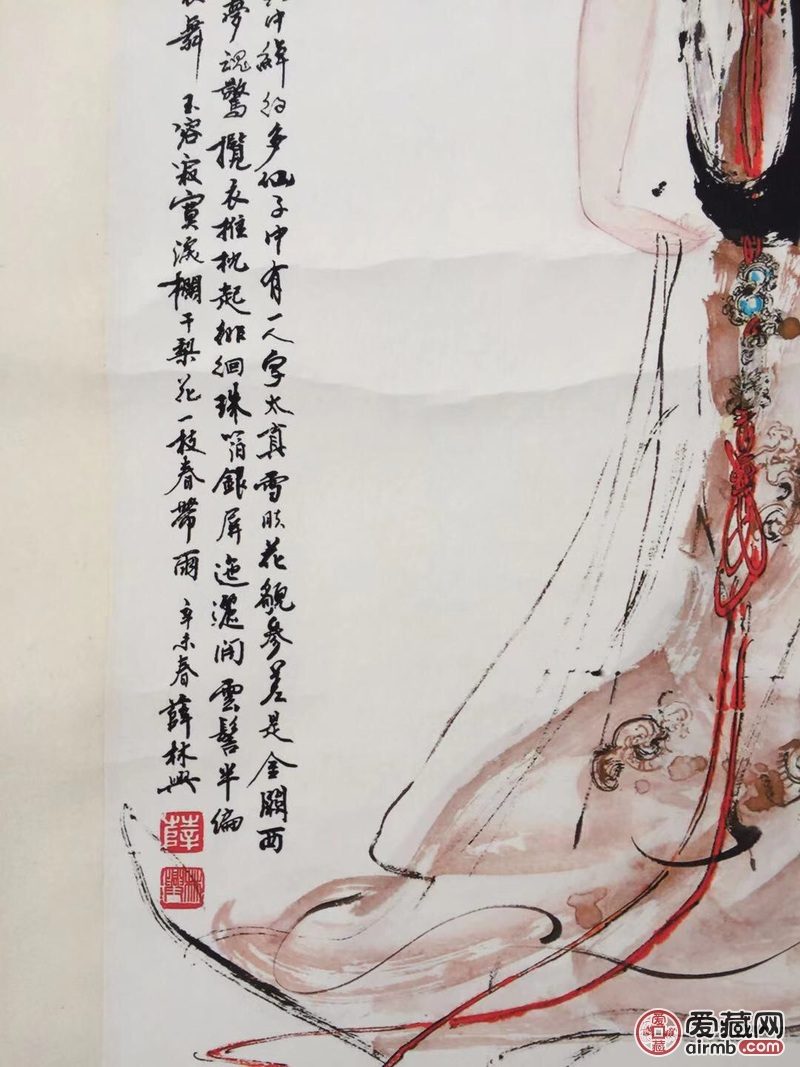 中綽約多仙子中有一人字太真雪肤花貌參差是金闕西
夢魂驚攬衣推枕起徘徊珠箔銀屏迤邐開雲髻半偏
舞玉容寂寞淚欄干梨花一枝春帶雨 辛未春 薛林興
薛
爱藏网
airmb.com